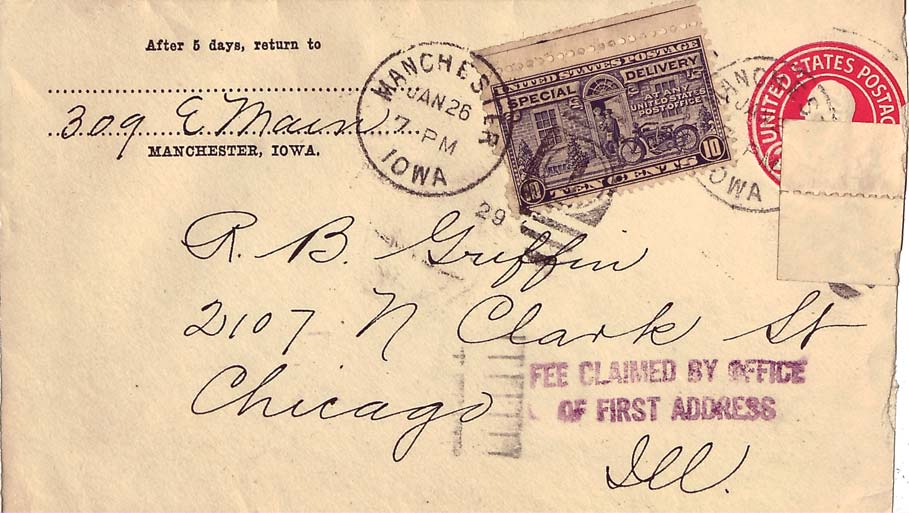 After 5 days, return to
309 E Main
MANCHESTER, IOWA.
MANCHESTER
JAN 26
7 PM
IOWA
29
UNITED STATES POSTAGE
SPECIAL DELIVERY
AT ANY
UNITED STATES
POST OFFICE
10 TEN CENTS 10
UNITED STATES POSTAG
R. B. Griffin
2107 N Clark St
Chicago
Ill.
FEE CLAIMED BY OFFICE
OF FIRST ADDRESS